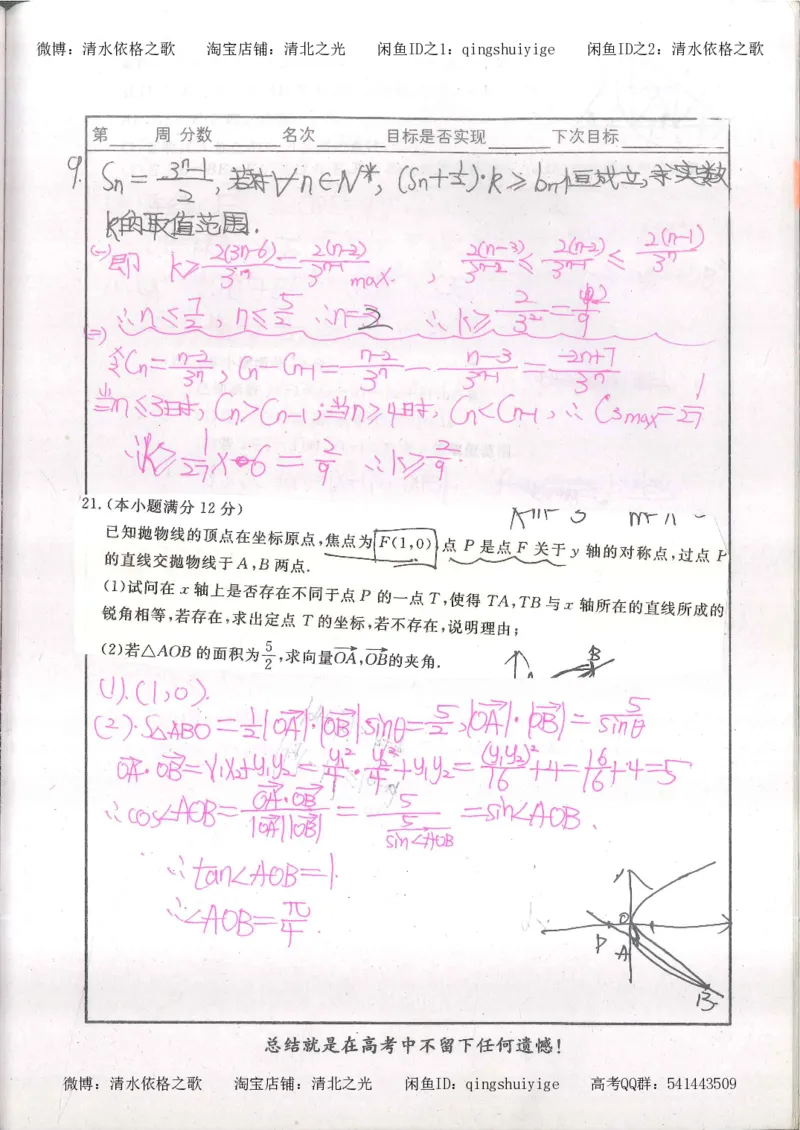 微博：清水依格之歌 淘宝店铺：清北之光 闲鱼ID之1：qingshuiyige 闲鱼ID之2：清水依格之歌
第 周 分数 名次 目标是否实现 下次目标
9. Sn=(3^n-1)/2, 若对∀n∈N*, (Sn+1/2)·k≥bn恒成立,求实数
k的取值范围.
(一) 即 k≥2(3n-6)/3^n-2(n-2)/3^(n-1) max. , 2(n-3)/3^(n-2)≤2(n-2)/3^(n-1)≤2(n-1)/3^n
∴n≤7/2, n≤5/2 ∴n=3 ∴k≥2/3^2=2/9
(二)
令Cn=(n-2)/3^n, Cn-Cn-1=(n-2)/3^n-(n-3)/3^(n-1)=(-2n+7)/3^n
当n≤3时, Cn>Cn-1;当n≥4时, Cn<Cn-1, ∴C3max=1/27
∴k≥1/27×6=2/9 ∴k≥2/9.
21.(本小题满分 12 分)
已知抛物线的顶点在坐标原点,焦点为 F(1,0),点 P 是点 F 关于 y 轴的对称点,过点 P
的直线交抛物线于 A,B 两点.
(1)试问在 x 轴上是否存在不同于点 P 的一点 T,使得 TA,TB 与 x 轴所在的直线所成的
锐角相等,若存在,求出定点 T 的坐标,若不存在,说明理由;
(2)若△AOB 的面积为5/2,求向量OA,OB的夹角.
B
(1).(1,0).
(2).S△ABO=1/2|OA|·|OB|sinθ=5/2,|OA|·|OB|=5/sinθ
OA·OB=x1x2+y1y2=y1²/4·y2²/4+y1y2=(y1y2)²/16+4=16/16+4=5
∴cos∠AOB=OA·OB/|OA||OB|=5/(5/sin∠AOB)=sin∠AOB.
∴tan∠AOB=1.
∴∠AOB=π/4.
O
P A
B
总结就是在高考中不留下任何遗憾！
微博：清水依格之歌 淘宝店铺：清北之光 闲鱼ID：qingshuiyige 高考QQ群：541443509